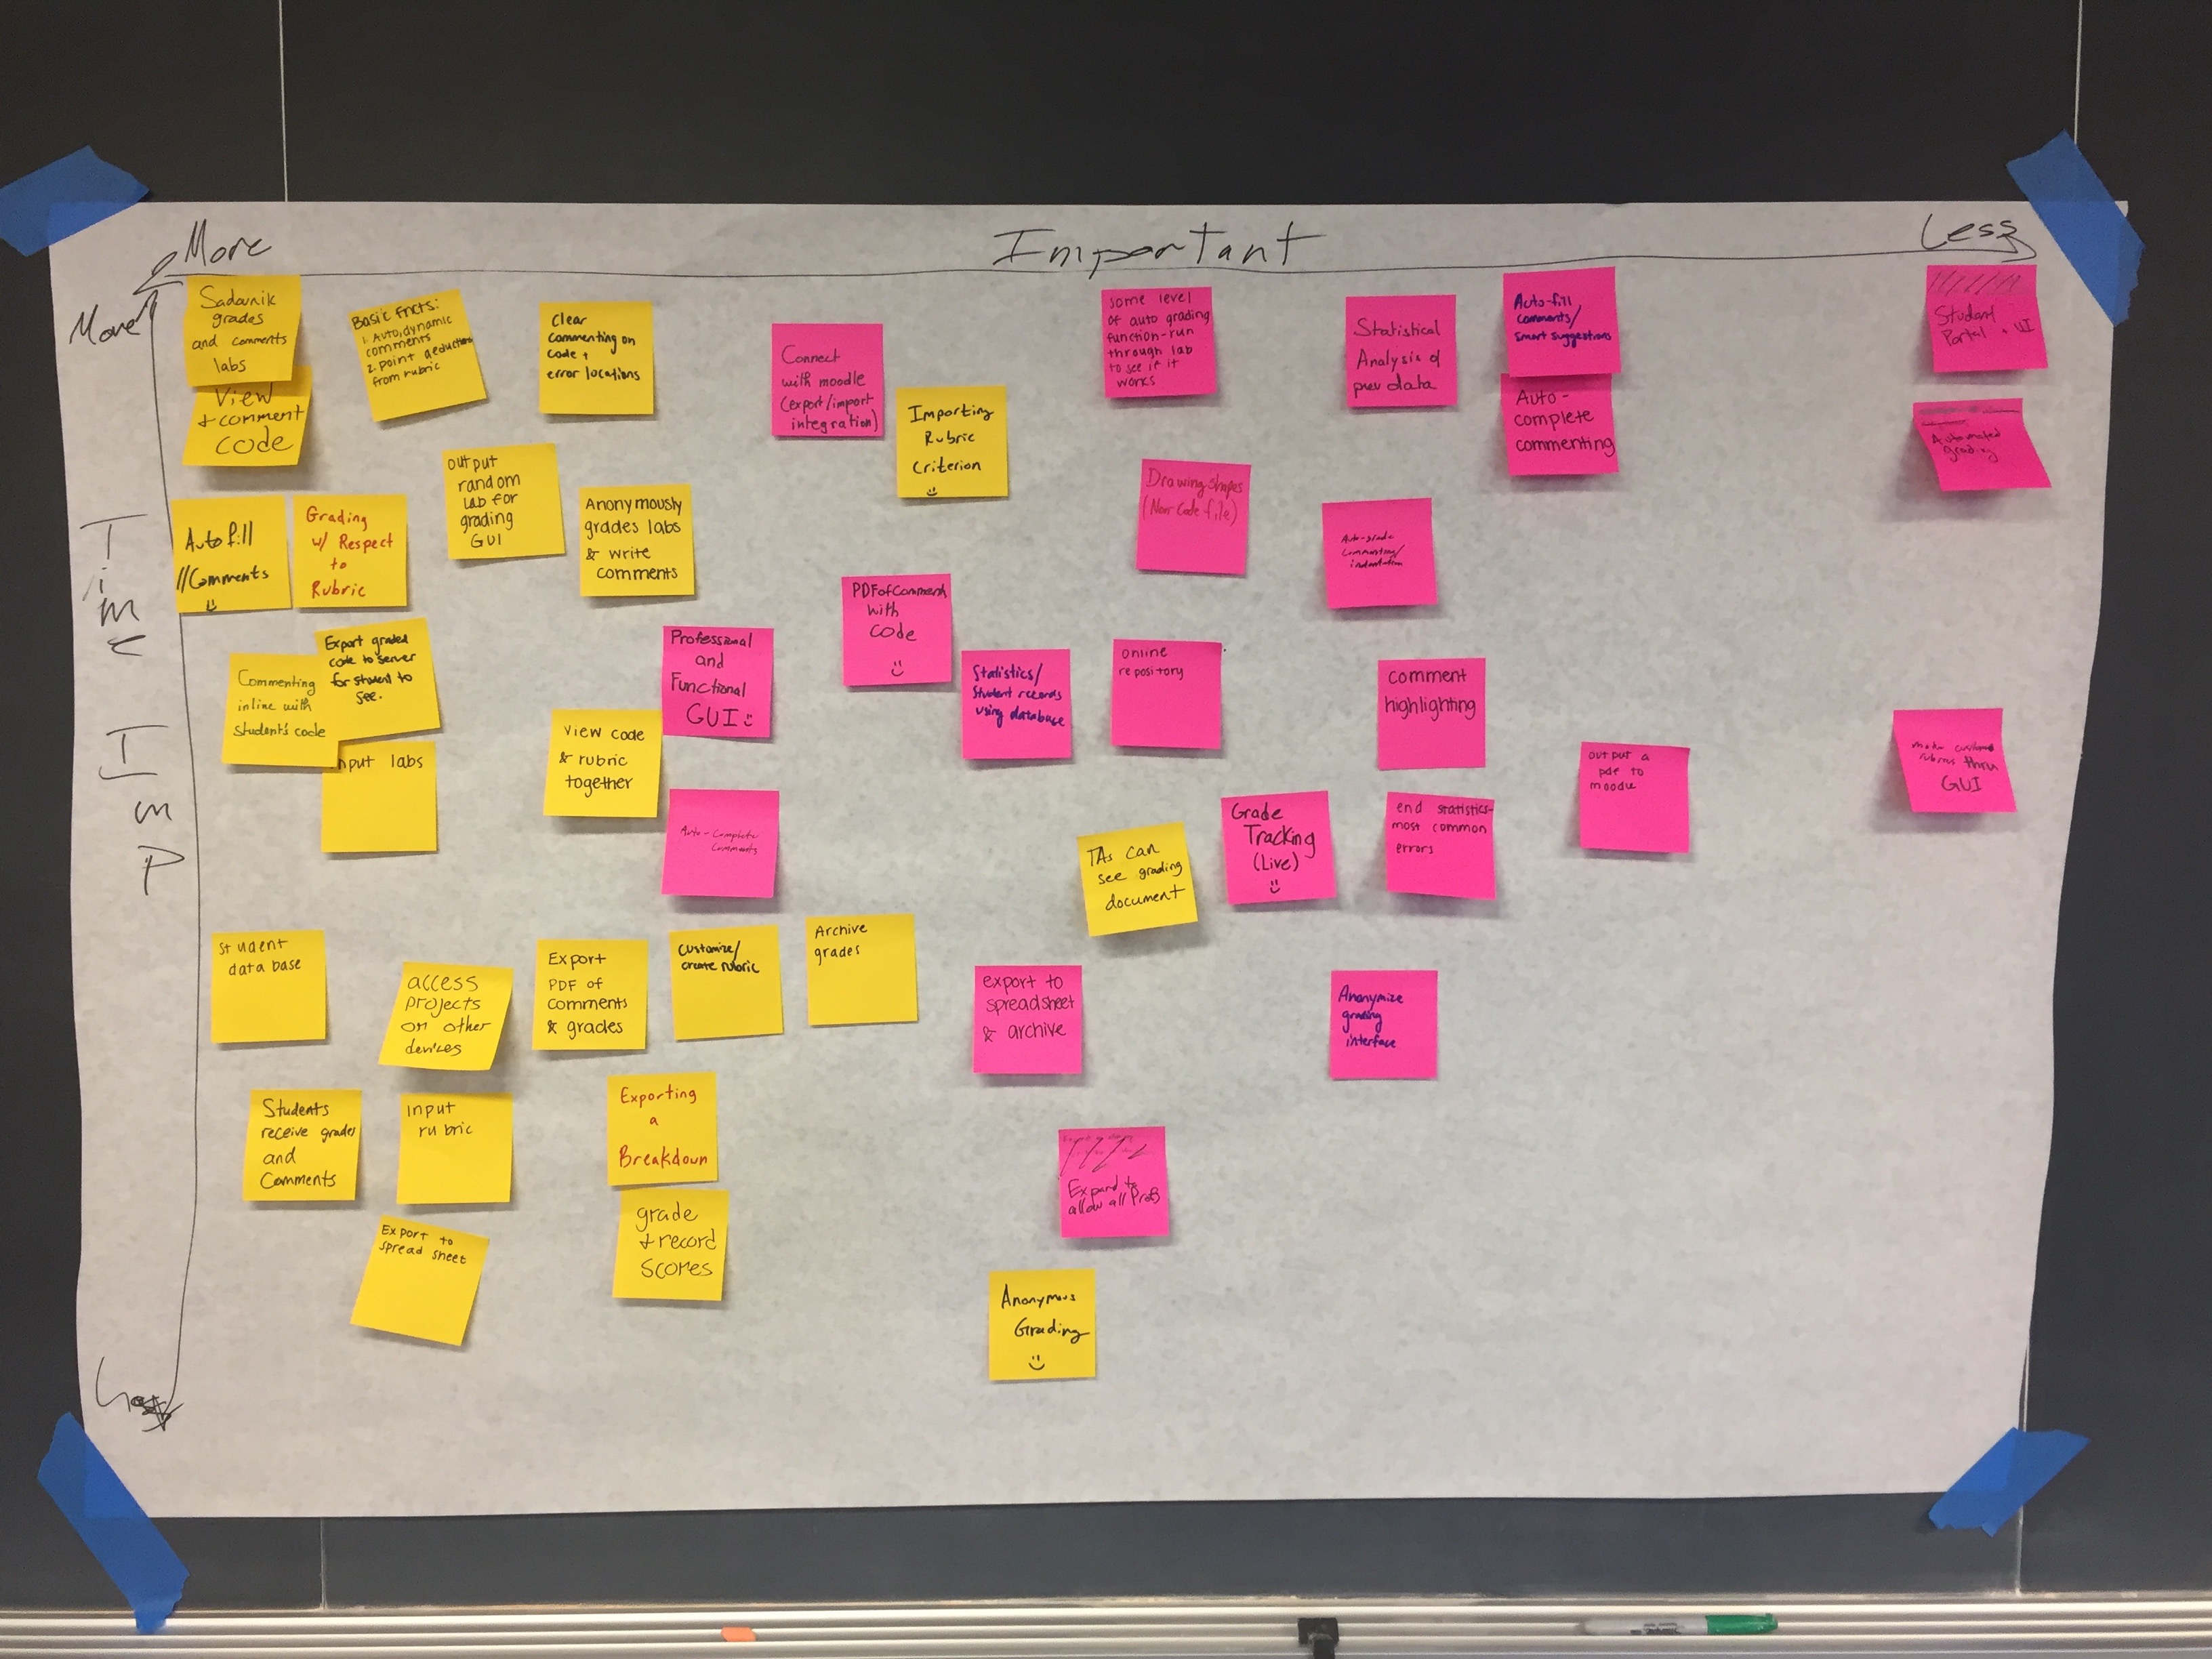 More
Important
Less
More
Time Imp
Less
Sadovnik
grades
and comments
labs
View
+ comment
code
Basic Fncts:
1. Auto, dynamic
comments
2. point deductions
from rubric
Clear
commenting on
code +
error locations
Connect
with moodle
(export/import
integration)
Importing
Rubric
Criterion
some level
of auto grading
function-run
through lab
to see if it
works
Statistical
Analysis of
prev data
Auto-fill
comments/
smart suggestions
Auto-
complete
commenting
Student
Portal + UI
Automated
grading
Autofill
//Comments
Grading
w/ Respect
to
Rubric
output
random
lab for
grading
GUI
Anonymously
grades labs
& write
comments
Drawing shapes
(Non code file)
Auto-grade
commenting/
indentation
PDF of comments
with
code
Export graded
code to server
for student to
see.
Commenting
inline with
student's code
input labs
Professional
and
Functional
GUI
Statistics/
student records
using database
online
repository
comment
highlighting
View code
& rubric
together
output a
pdf to
moodle
rubrics thru
GUI
Auto-Complete
Comments
TAs can
see grading
document
Grade
Tracking
(Live)
end statistics-
most common
errors
student
data base
access
projects
on other
devices
Export
PDF of
comments
& grades
customize/
create rubric
Archive
grades
export to
spreadsheet
& archive
Anonymize
grading
interface
Students
receive grades
and
Comments
input
rubric
Exporting
a
Breakdown
Expand to
allow all Profs
Export to
spread sheet
grade
+ record
scores
Anonymous
Grading